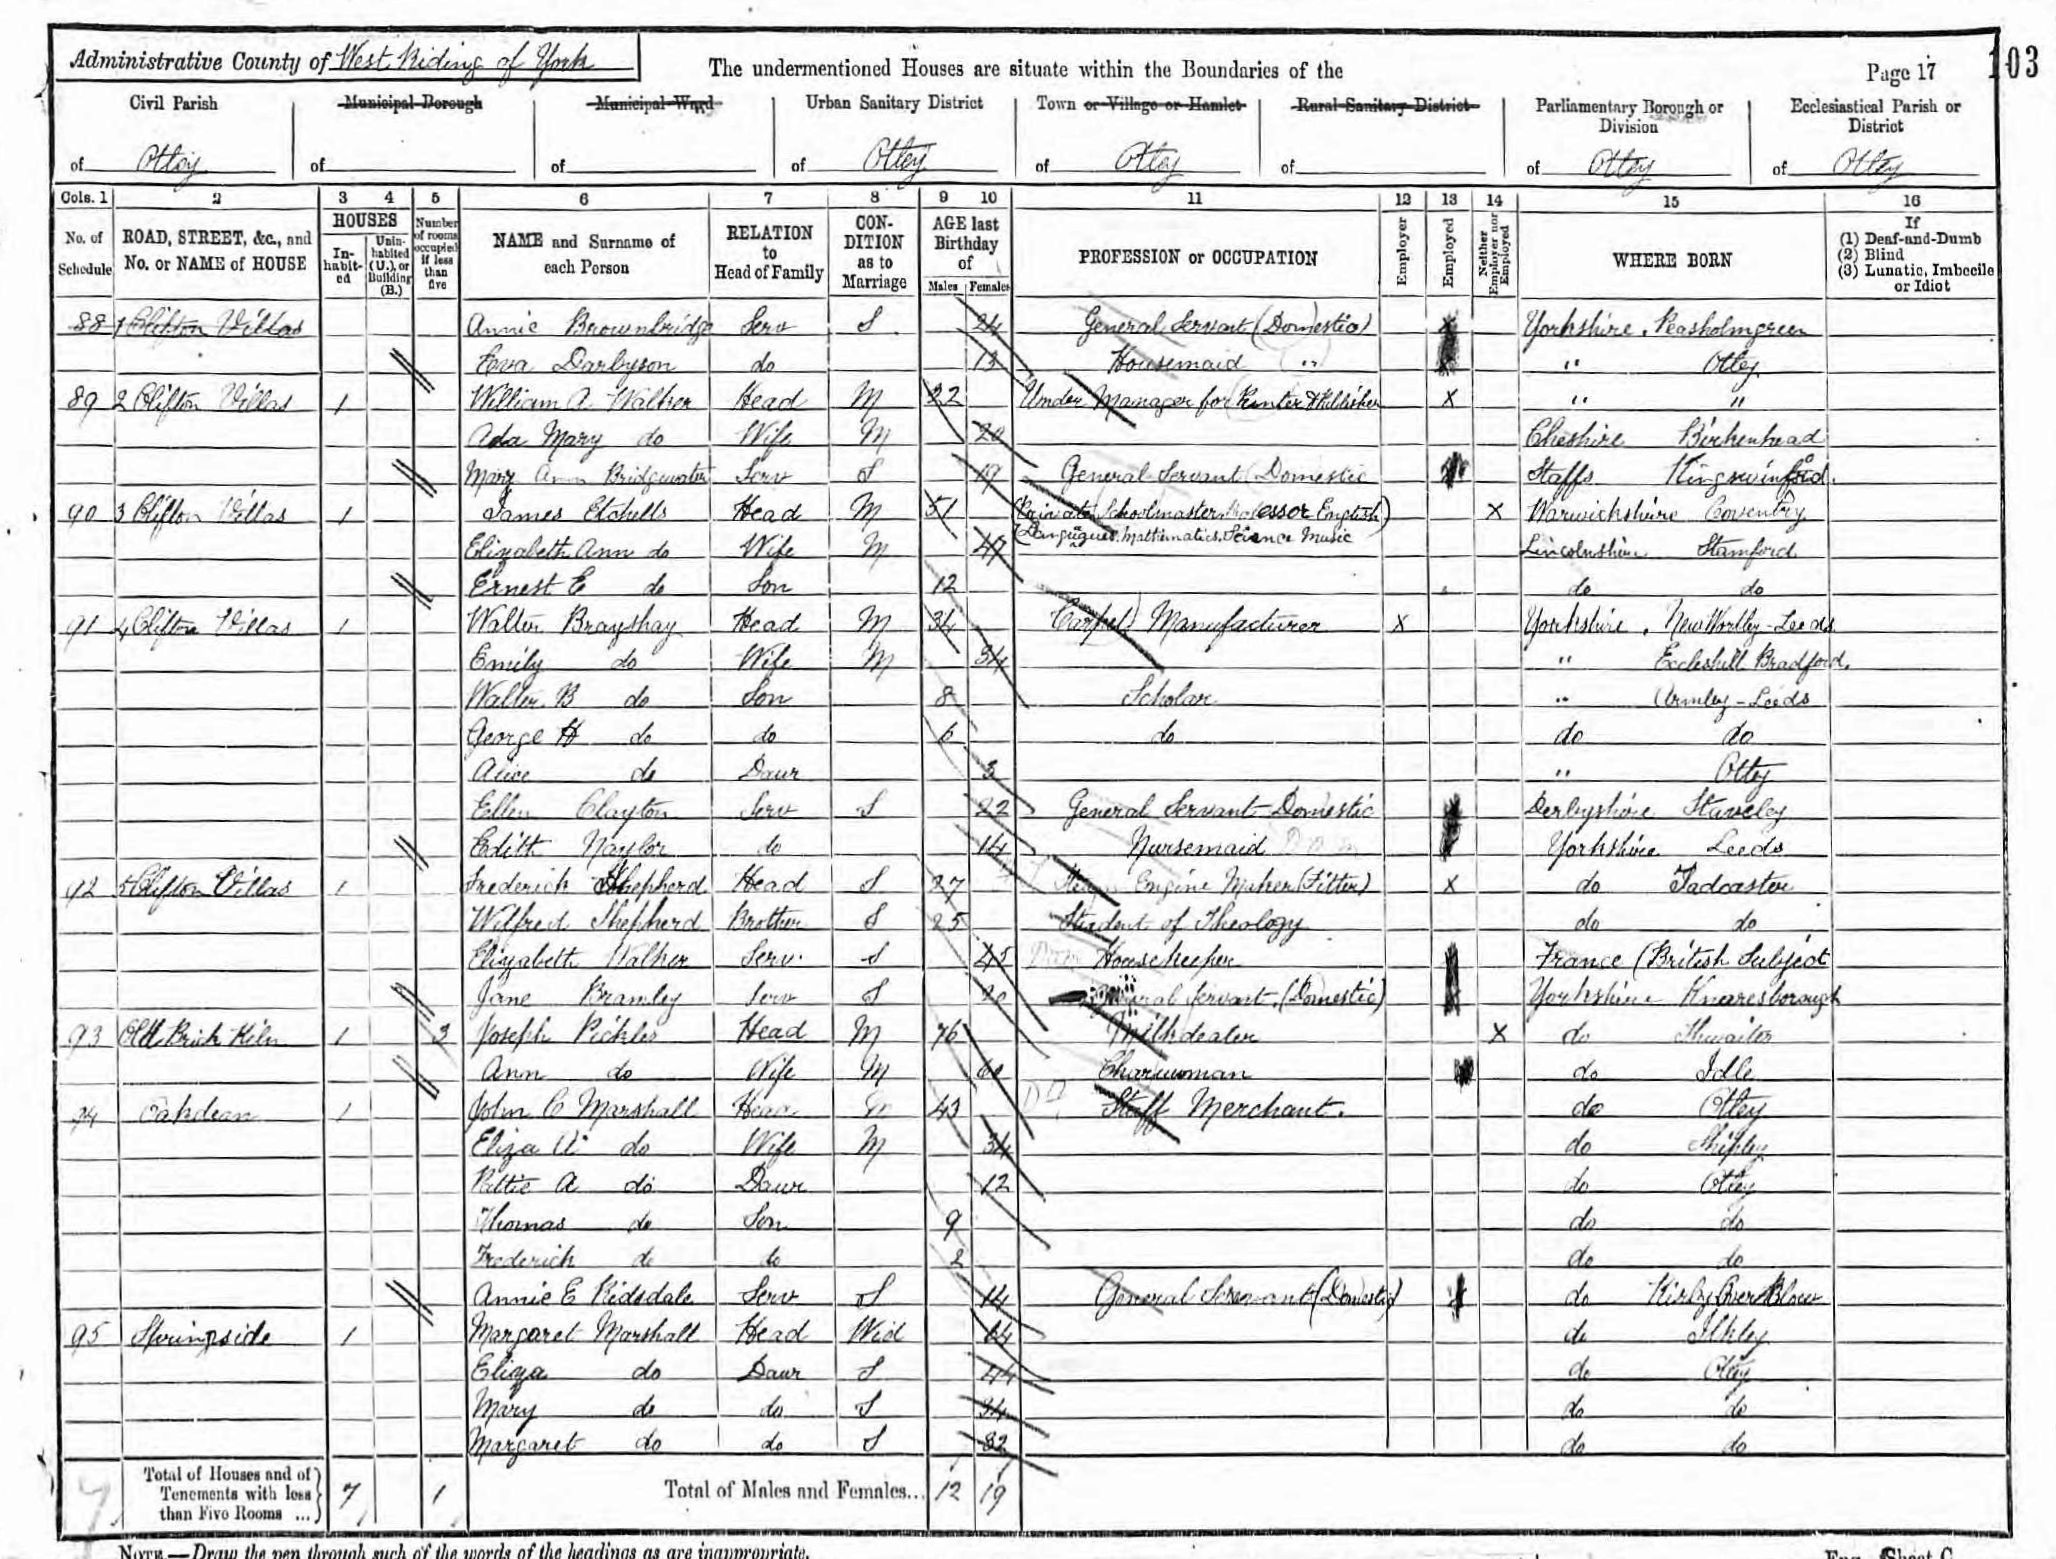 Administrative County of West Riding of York
The undermentioned Houses are situate within the Boundaries of the
Page 17
103
Civil Parish of Otley
Municipal Borough of
Municipal Ward of
Urban Sanitary District of Otley
Town or Village or Hamlet of Otley
Rural Sanitary District of
Parliamentary Borough or Division of Otley
Ecclesiastical Parish or District of Otley
Cols. 1 2 3 4 5 6 7 8 9 10 11 12 13 14 15 16
No. of Schedule
ROAD, STREET, &c., and No. or NAME of HOUSE
HOUSES
In-habit-ed
Unin-habited (U.), or Building (B.)
Number of rooms occupied if less than five
NAME and Surname of each Person
RELATION to Head of Family
CON-DITION as to Marriage
AGE last Birthday of
Males Females
PROFESSION or OCCUPATION
Employer
Employed
Neither Employer nor Employed
WHERE BORN
If
(1) Deaf-and-Dumb
(2) Blind
(3) Lunatic, Imbecile or Idiot
88 1 Clifton Villas Annie Brownbridge Serv S 24 General Servant (Domestic) X Yorkshire. Peasholmgreen
Eva Darbyson do 13 Housemaid " X " Otley
89 2 Clifton Villas 1 William A Walker Head M 22 Under Manager for Printer & Publisher X " "
Ada Mary do Wife M 20 Cheshire Birkenhead
Mary Ann Bridgewater Serv S 19 General Servant (Domestic Staffs Kingswinford.
90 3 Clifton Villas 1 James Etchells Head M 51 Private Schoolmaster Professor English) X Warwickshire Coventry
Elizabeth Ann do Wife M 47 (Languages, Mathematics, Science Music Lincolnshire Stamford
Ernest E do Son 12 do do
91 4 Clifton Villas 1 Walter Brayshay Head M 34 Carpet Manufacturer X Yorkshire. New Wortley - Leeds
Emily do Wife M 34 " Eccleshill Bradford.
Walter B do Son 8 Scholar " Armley - Leeds
George H do do 6 do do do
Alice do Daur 3 " Otley
Ellen Clayton Serv S 22 General Servant Domestic Derbyshire Staveley
Edith Naylor do 14 Nursemaid Dom Yorkshire Leeds
92 5 Clifton Villas 1 Frederick Shepherd Head S 27 Engine Maker (Fitter) X do Tadcaster
Wilfred Shepherd Brother S 25 Student of Theology do do
Elizabeth Walker Serv. S 45 Dom Housekeeper France (British Subject
Jane Bramley Serv S 20 General Servant. (Domestic) Yorkshire Knaresborough
93 Old Brick Kiln 1 3 Joseph Pickles Head M 76 Milkdealer X do Thwaites
Ann do Wife M 60 Charwoman do Idle
94 Oakdean 1 John C Marshall Head M 43 Stuff Merchant. do Otley
Eliza A do Wife M 34 do Shipley
Pattie A do Daur 12 do Otley
Thomas do Son 9 do do
Frederick do do 2 do do
Annie E Ridsdale Serv S 14 General Servant (Domestic) do Kirby Over Blow
95 Springside 1 Margaret Marshall Head Wid 64 do Ilkley
Eliza do Daur S 44 do Otley
Mary do do S 34 do do
Margaret do do S 32 do do
Total of Houses and of Tenements with less than Five Rooms ... 7 1 Total of Males and Females... 12 19
NOTE.—Draw the pen through such of the words of the headings as are inappropriate.
Eng. Sheet C